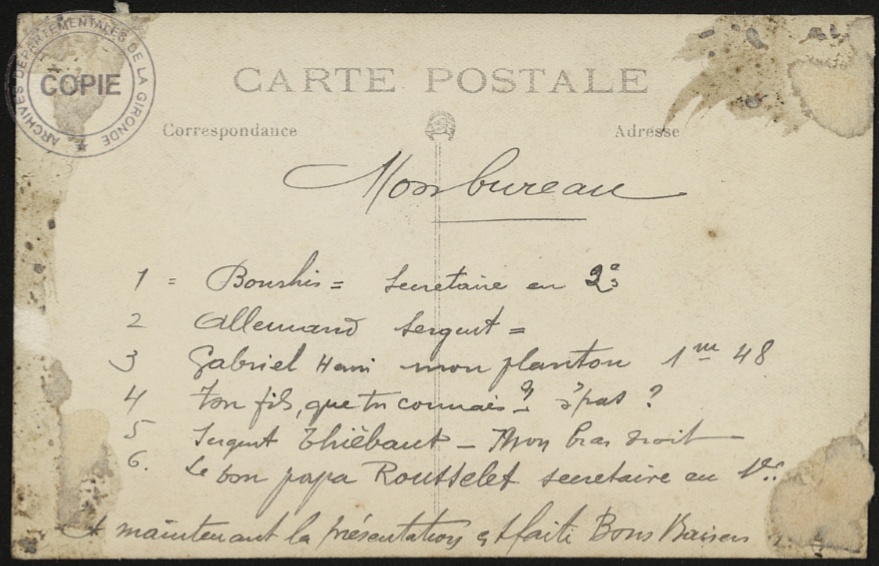 ARCHIVES DÉPARTEMENTALES DE LA GIRONDE
COPIE
CARTE POSTALE
Correspondance Adresse
Mon bureau
1 = = Secretaire en 2e
2 Allemand Sergent =
3 Gabriel Henri mon planton 1m 48
4 Ton fils, que tu connais? s'pas?
5 Sergent Thiébaut – Mon bras droit –
6. Le bon papa Rousselet secretaire en 1er
Et maintenant la présentation est faite Bons Baisers